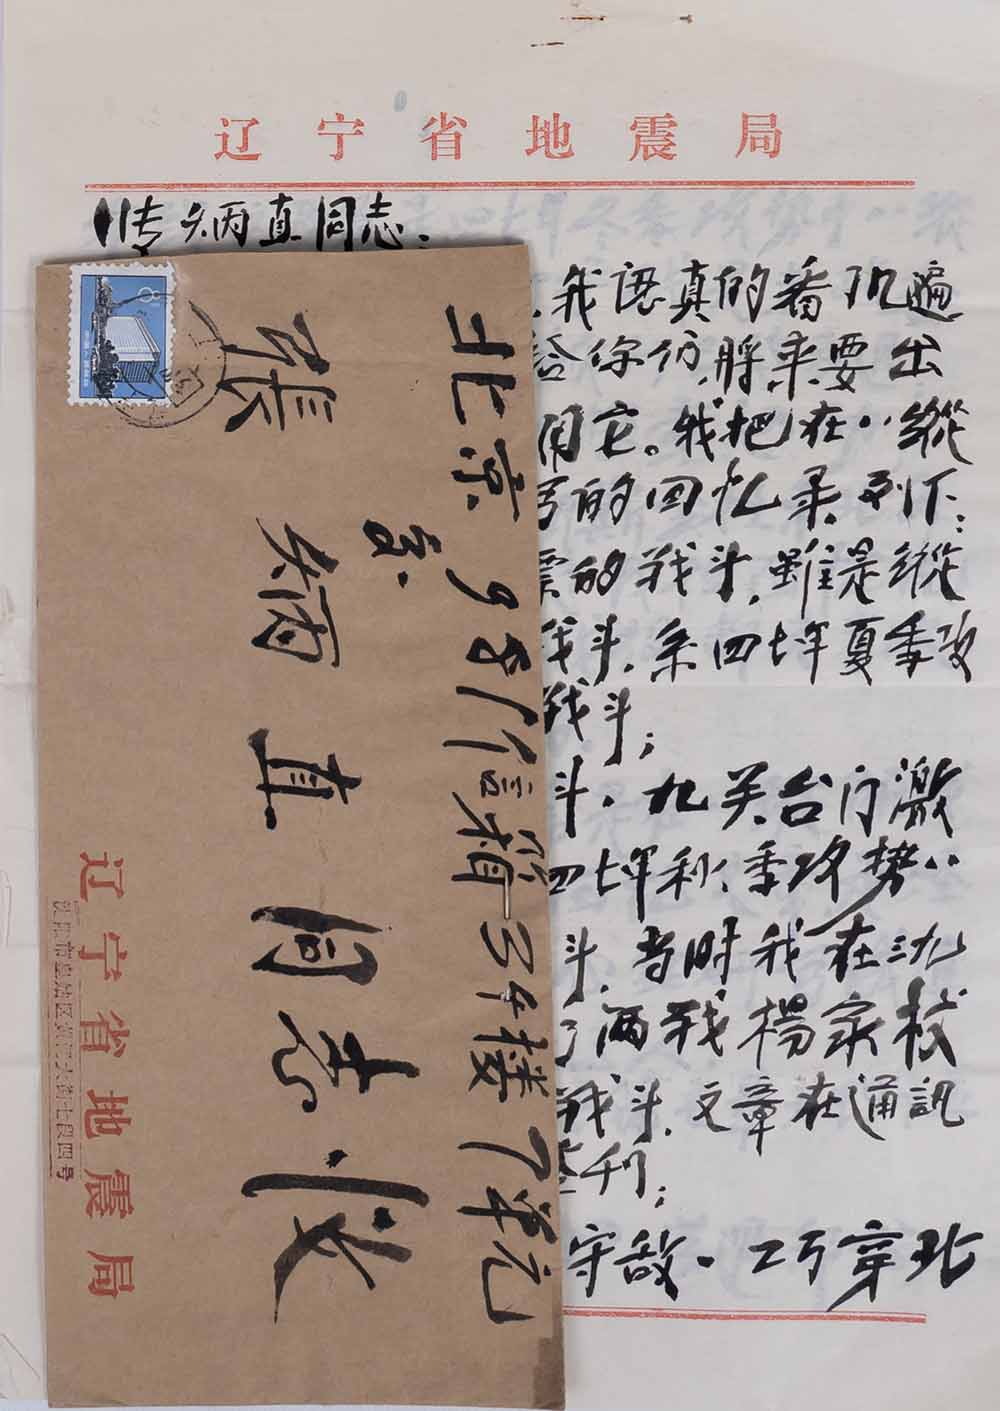 辽宁省地震局
张炳直同志：
我认真的看了几遍
给你们，将来要出
用它。我把在八纵
写的回忆录列下：
的战斗，虽是纵
战斗，系四七年夏季攻
战斗；
斗，九关台门激
四七年秋季攻势八
斗，当时我在沈
了两战杨家杖
战斗，文章在通訊
刊；
守敌，巧穿北
北京
9581信箱34楼7单元
張炳直同志收
辽宁省地震局
8